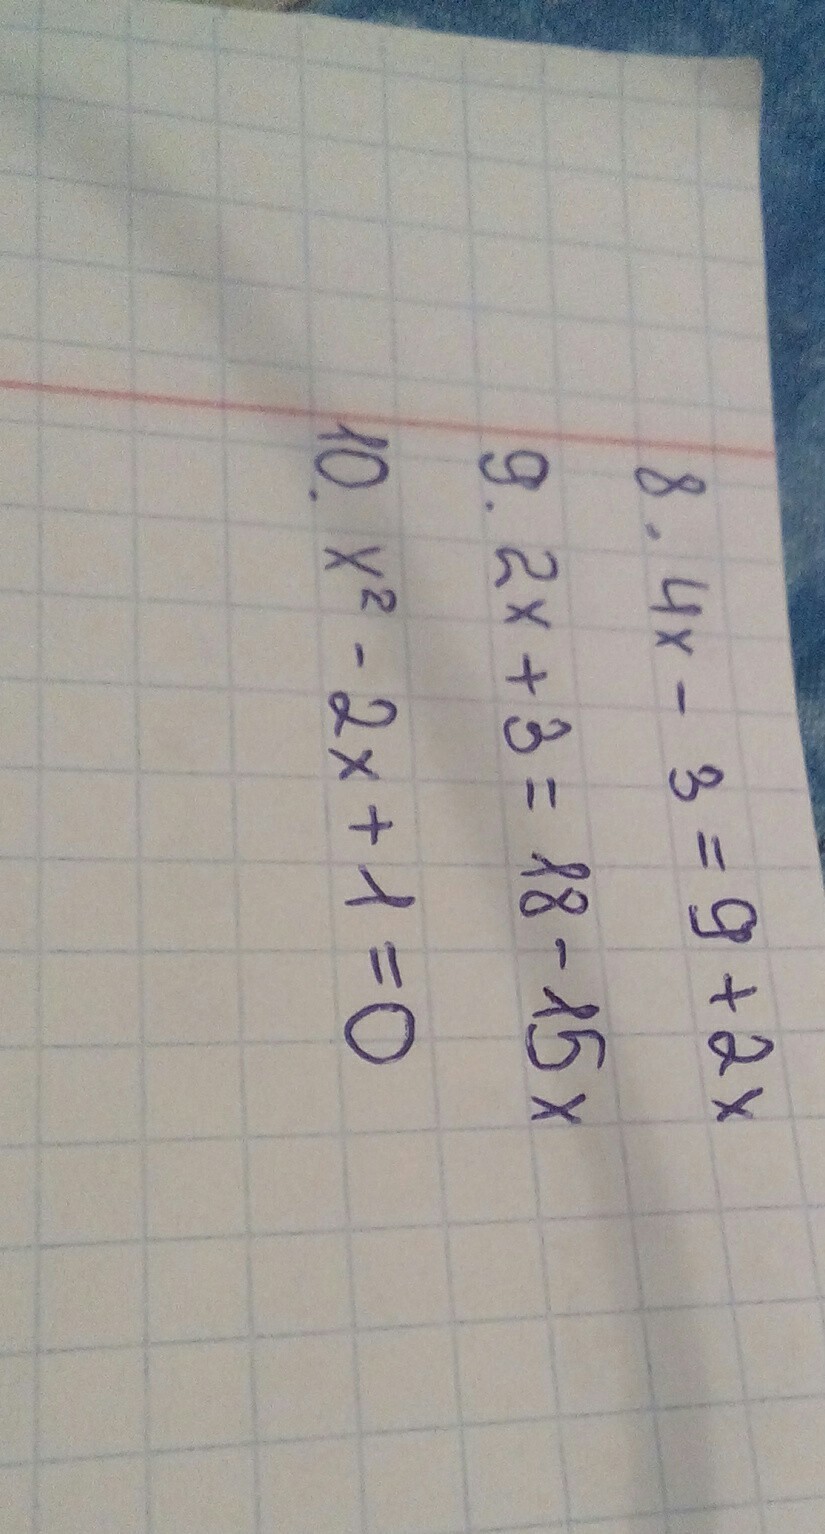 8. 4x - 3 = 9 + 2x
9. 2x + 3 = 18 - 15x
10. x² - 2x + 1 = 0